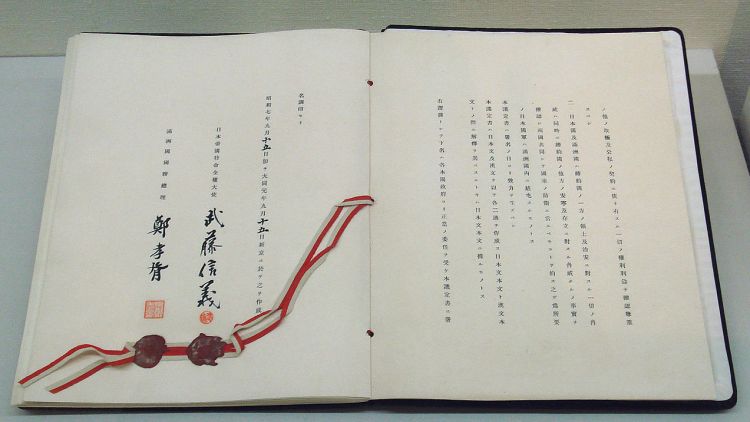 ノ他ノ取極及公私ノ契約ニ依リ有スル一切ノ權利利益ヲ確認尊重
スベシ
二、日本國及滿洲國ハ締約國ノ一方ノ領土及治安ニ對スル一切ノ脅
威ハ同時ニ締約國ノ他方ノ安寧及存立ニ對スル脅威タルノ事實ヲ
確認シ兩國共同シテ國家ノ防衞ニ當ルベキコトヲ約ス之ガ爲所要
ノ日本國軍ハ滿洲國內ニ駐屯スルモノトス
本議定書ハ署名ノ日ヨリ效力ヲ生ズベシ
本議定書ハ日本文及漢文ヲ以テ各二通ヲ作成ス日本文本文ト漢文本
文トノ間ニ解釋ヲ異ニスルトキハ日本文本文ニ據ルモノトス
右證據トシテ下名ハ各本國政府ヨリ正當ノ委任ヲ受ケ本議定書ニ署
名調印セリ
昭和七年九月十五日卽チ大同元年九月十五日新京ニ於テ之ヲ作成
日本帝國特命全權大使 武藤信義
滿洲國國務總理 鄭孝胥